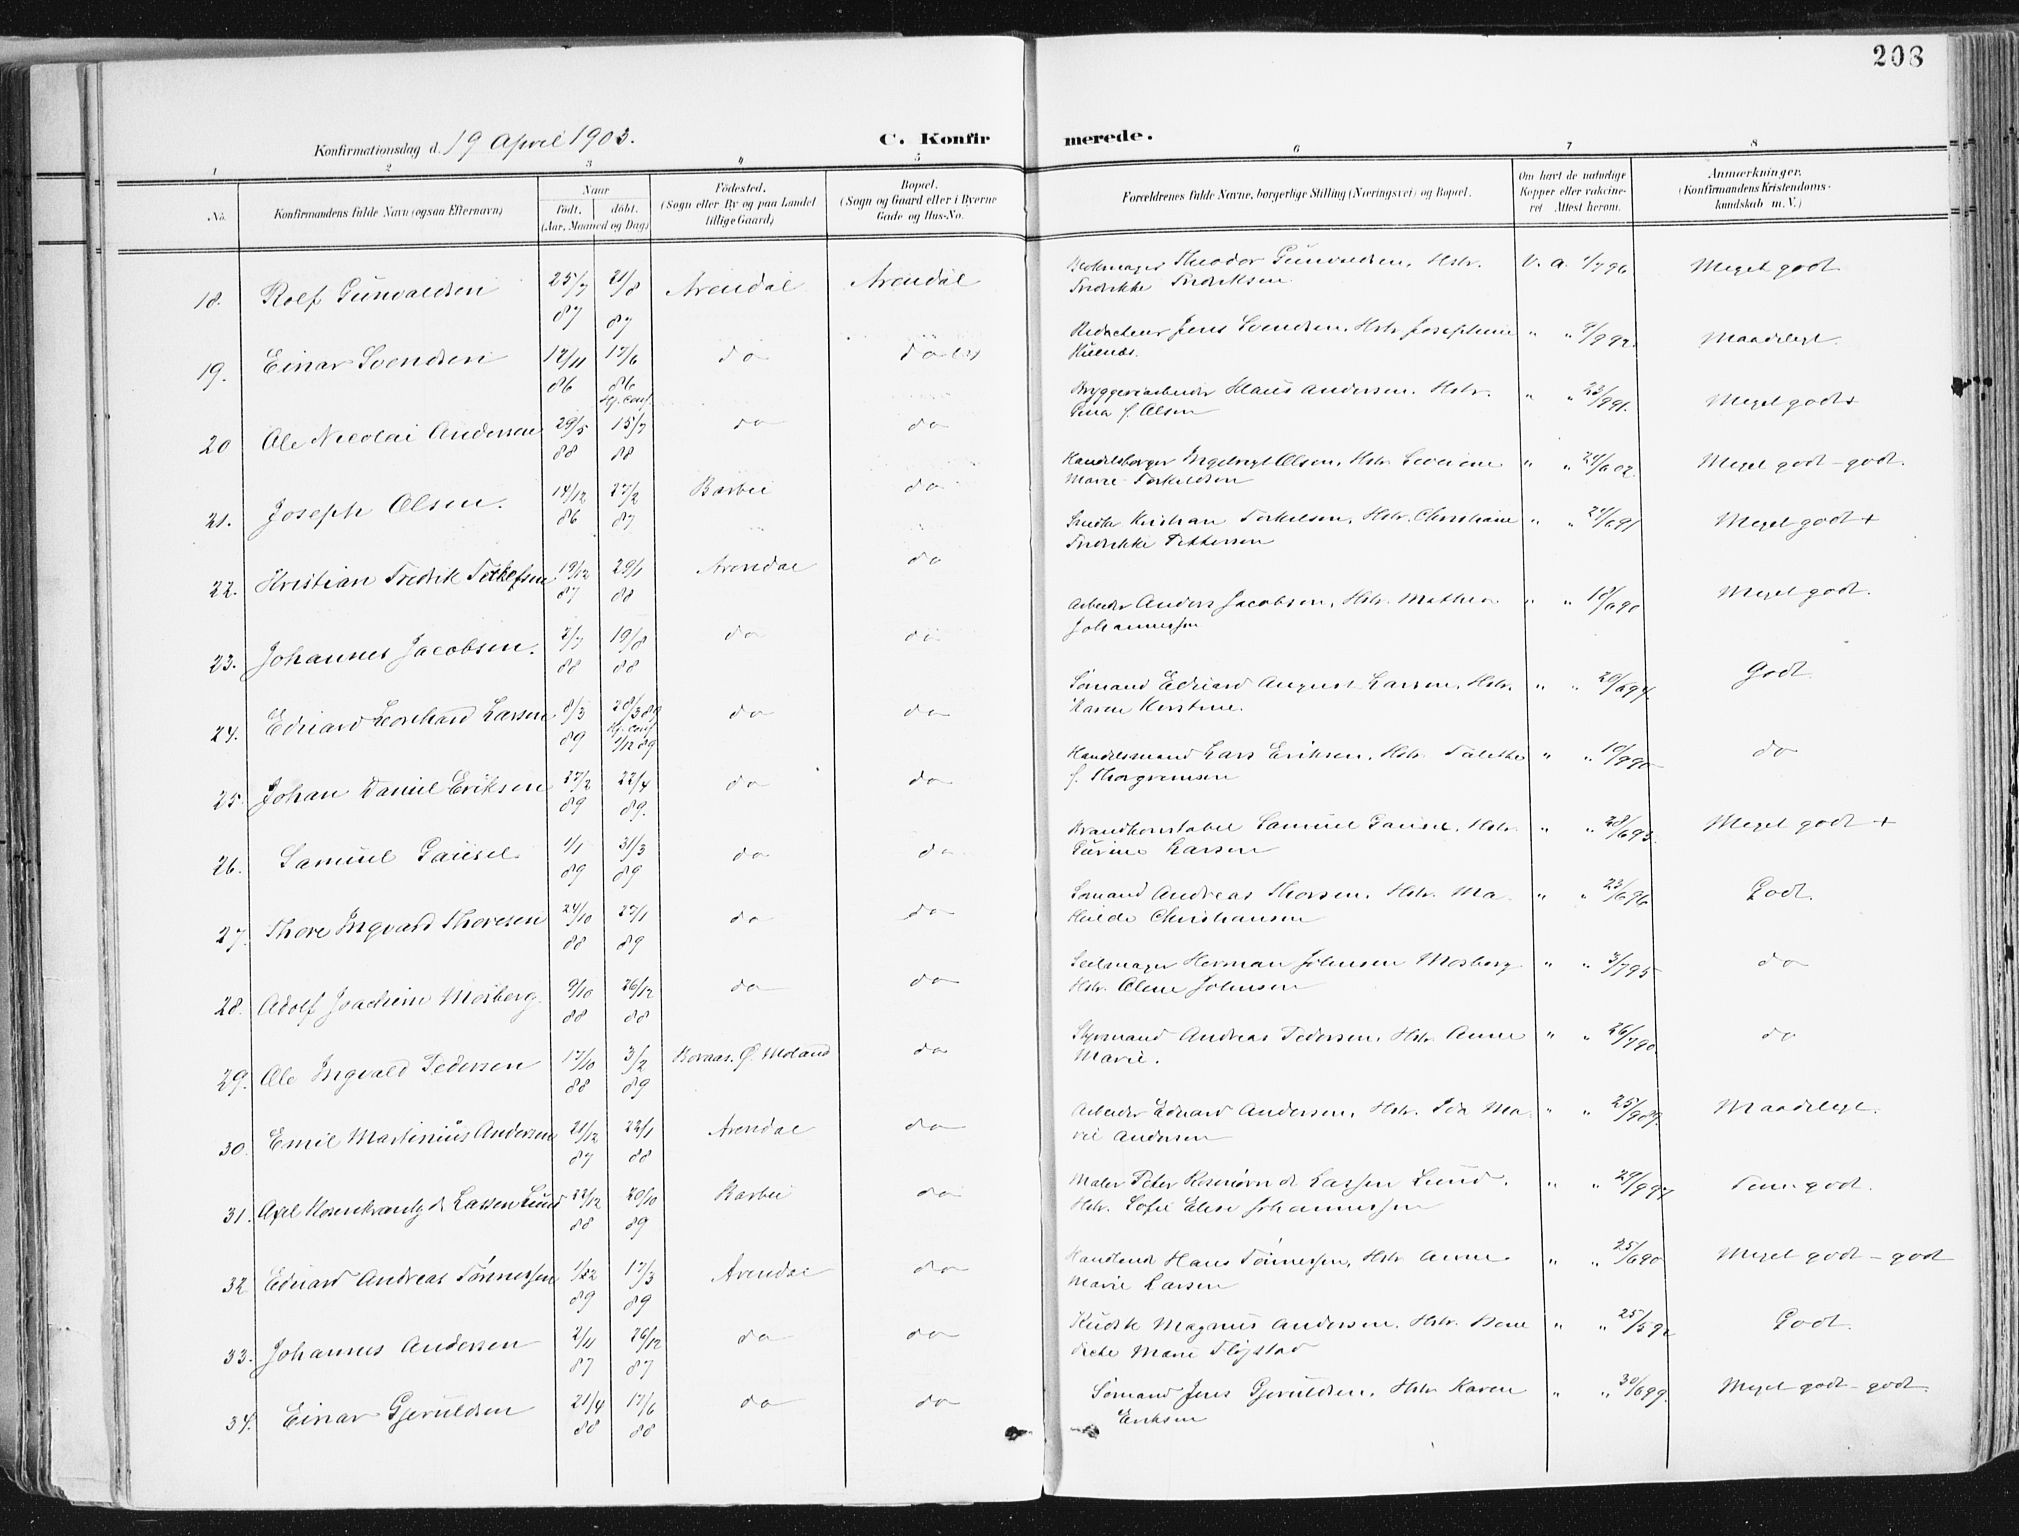 208
Konfirmationsdag d. 19 April 1903.
C. Konfirmerede.
1 2 3 4 5 6 7 8
No.
Konfirmandens fulde Navn (ogsaa Efternavn)
Naar
født. døbt.
(Aar, Maaned og Dag)
Fødested.
(Sogn eller By og paa Landet
tillige Gaard)
Bopæl.
(Sogn og Gaard eller i Byerne
Gade og Hus-No.
Forældrenes fulde Navne, borgerlige Stilling (Næringsvei) og Bopæl.
Om havt de naturlige
Kopper eller vaccine-
ret Attest herom.
Anmærkninger.
(Konfirmandens Kristendoms-
kundskab m. V.)
18. Rolf Gunvaldsen 25/7 87 21/8 87 Arendal Arendal Theodor Gunvaldsen, Hstr. V. a. 1/7 96 Meget godt
Fredrikke Fredriksen
19. Einar Svendsen 12/11 86 17/6 86 do do Redacteur Jens Svendsen, Hstr Josephine " " 9/9 92. Maadeligt.
20 Ole Nicolai Andersen 29/5 88 15/7 88 do do Bryggeriarbeider Klaus Andersen, Hstr. " " 23/9 91. Meget godt+
f. Olsen
21. Joseph Olsen. 14/12 86 27/2 87 Barbu do Handelsborger Ingebregt Olsen, Hstr Severine " " 24/6 02. Meget godt - godt.
Marie Torkildsen
22. Kristian Fredrik Terkelsen 19/12 87 29/1 88 Arendal do Kristian Terkelsen, Hstr. Christiane " " 24/6 91 Meget godt +
Fredrikke Pettersen
23. Johannes Jacobsen. 2/7 88 19/8 88 do do Arbeider Anders Jacobsen, Hstr. Mathea " " 18/6 90 Meget godt.
Johannessen
24. Edvard Leonhard Larsen 8/3 89 28/3 89 do do Sømand Edvard August Larsen, Hstr. " " 20/6 94. Godt.
Karen Kirstine.
25. Johan Daniel Eriksen 27/2 89 22/4 89. do do Handelsmand Lars Eriksen, Hstr. Talette " " 10/9 90 do
f. Thorgrimsen
26. Samuel Gausel 1/1 89 31/3 89 do do Brandkonstabel Samuel Gausel, Hstr. " " 28/6 93. Meget godt +
Gurine Larsen
27. Thore Ingvald Thoresen 24/10 88 27/1 89 do do Sømand Andreas Thorsen, Hstr. Ma- " " 23/6 96 Godt.
thilde Christiansen
28. Adolf Joachim Mosberg. 9/10 88 26/12 88 do do Seilmager Herman Johnsen Mosberg " " 3/7 95 do
Hstr. Olene Johnsen
29. Ole Ingvald Pedersen 17/10 88 3/2 89 Boraas. Ø. Moland do Styrmand Andreas Pedersen, Hstr. Anne " " 26/7 90. do
Marie.
30. Emil Martinius Andersen 21/12 87 22/1 88 Arendal do Arbeider Edvard Andersen, Hstr. Ida Ma- " " 25/9 89. Maadeligt.
rie Andersen
31. Axel Rosenkrantz d. Lassen Lund 22/12 88 20/10 89 Barbu do Maler Peter Rosenørn d. Lassen Lund. " " 29/9 97 Temr godt.
Hstr. Sofie Elise Johannessen
32 Edvard Andreas Tønnessen 1/22 89 17/3 89 Arendal do Handlende Hans Tønnessen, Hstr Anne " " 25/6 90 Meget godt - godt
Marie Larsen
33. Johannes Andersen 2/11 87 26/12 87 do do Kudsk Magnus Andersen, Hstr. Bene- " " 25/5 92 Godt.
dicte Marie Fløystad
34. Einar Gjeruldsen 21/4 88 17/6 88 do do Sømand Jens Gjeruldsen, Hstr Karen " " 30/6 99. Meget godt - godt.
Eriksen